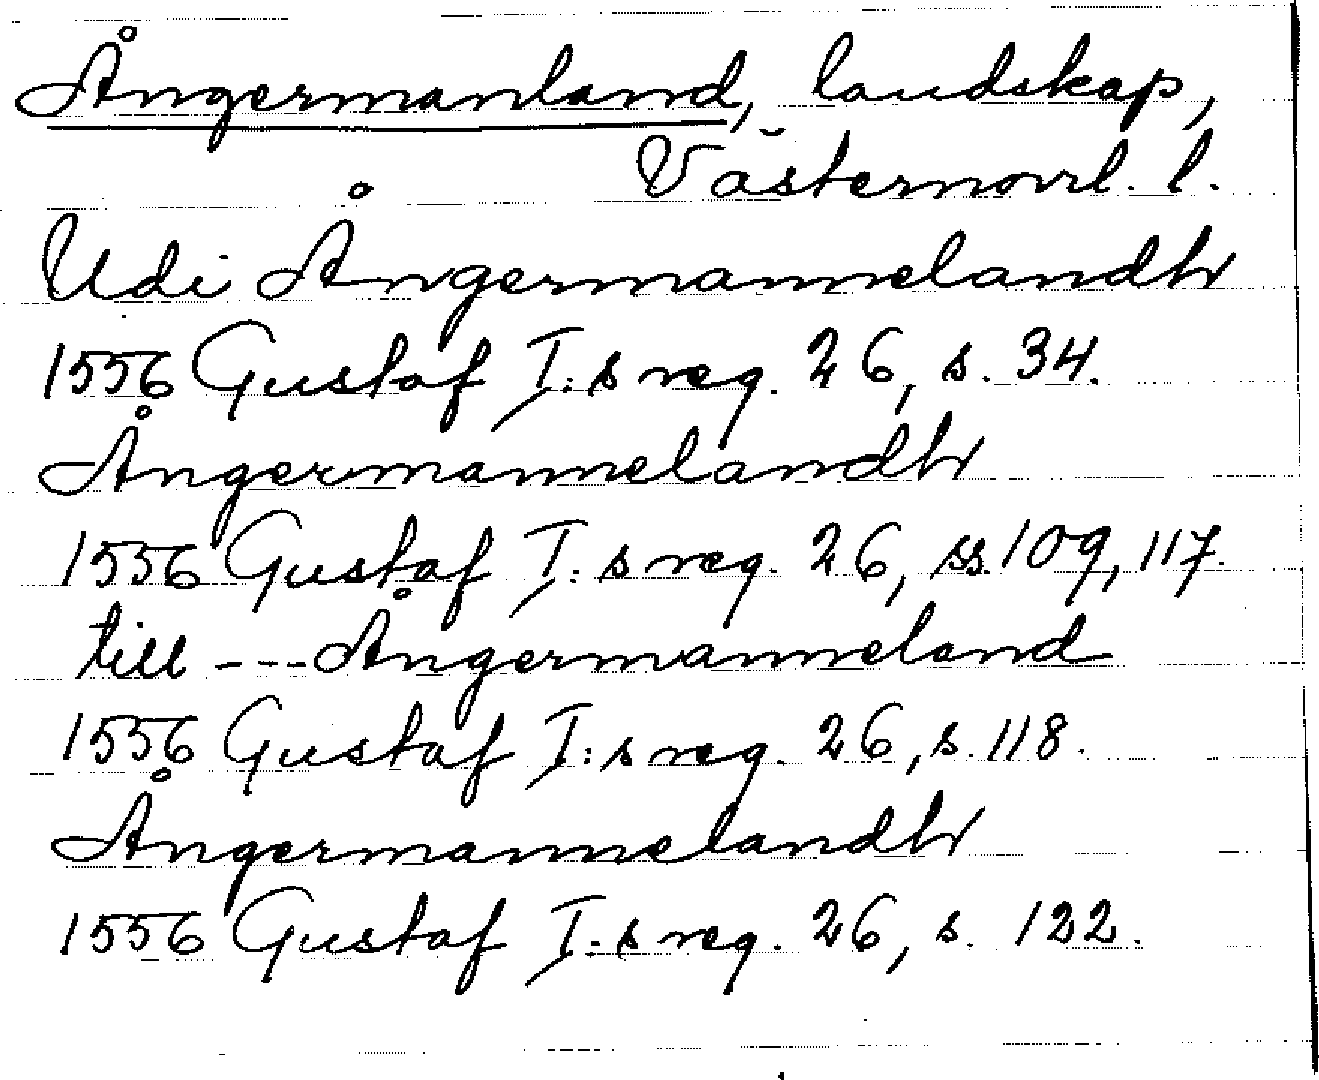 Ångermanland, landskap,
Västernorrl. l.
Udi Ångermannelandh
1556 Gustaf I:s reg. 26, s. 34.
Ångermannelandh
1556 Gustaf I:s reg. 26, ss. 109, 117.
till --- Ångermanneland
1556 Gustaf I:s reg. 26, s. 118.
Ångermannelandh
1556 Gustaf I:s reg. 26, s. 122.